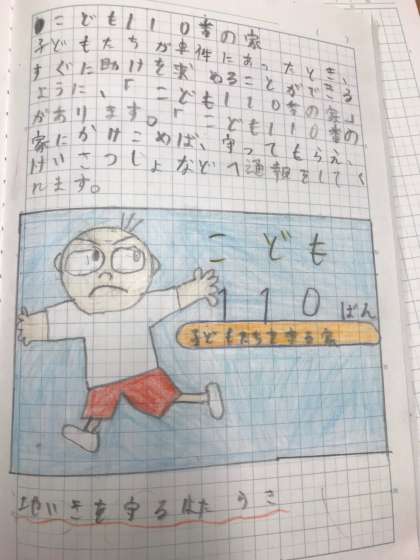 ●こども110番の家
子どもたちが事件にあったとき、
すぐに助けを求めることができる
ように、「こども110番の家」
があります。「こども110番の
家にかけこめば、守ってもらえ、
けいさつしょなどへ通報をしてく
れます。
こども
110ばん
子どもたちを守る家
ちいきを守るはたらき